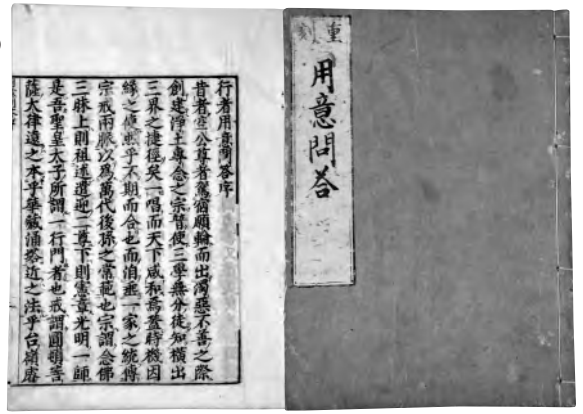 重刻
用意問荅
行者用意問荅序
昔者空公尊者駕宿願輪而出濁惡不善之際
創建淨土專念之宗普使三學無分徒知橫出
三界之捷徑矣一唱而天下咸和焉蓋時機因
緣之使然乎不期而合也而洎垂一家之統傳
宗戒兩脈以爲萬代後孫之常範也宗謂念佛
三昧上則祖述遣迎二尊下則憲章光明一師
是吾聖皇太子所謂一行門者也戒謂圓頓菩
薩大律遠之本乎華藏涌塔近之法乎台嶺唐